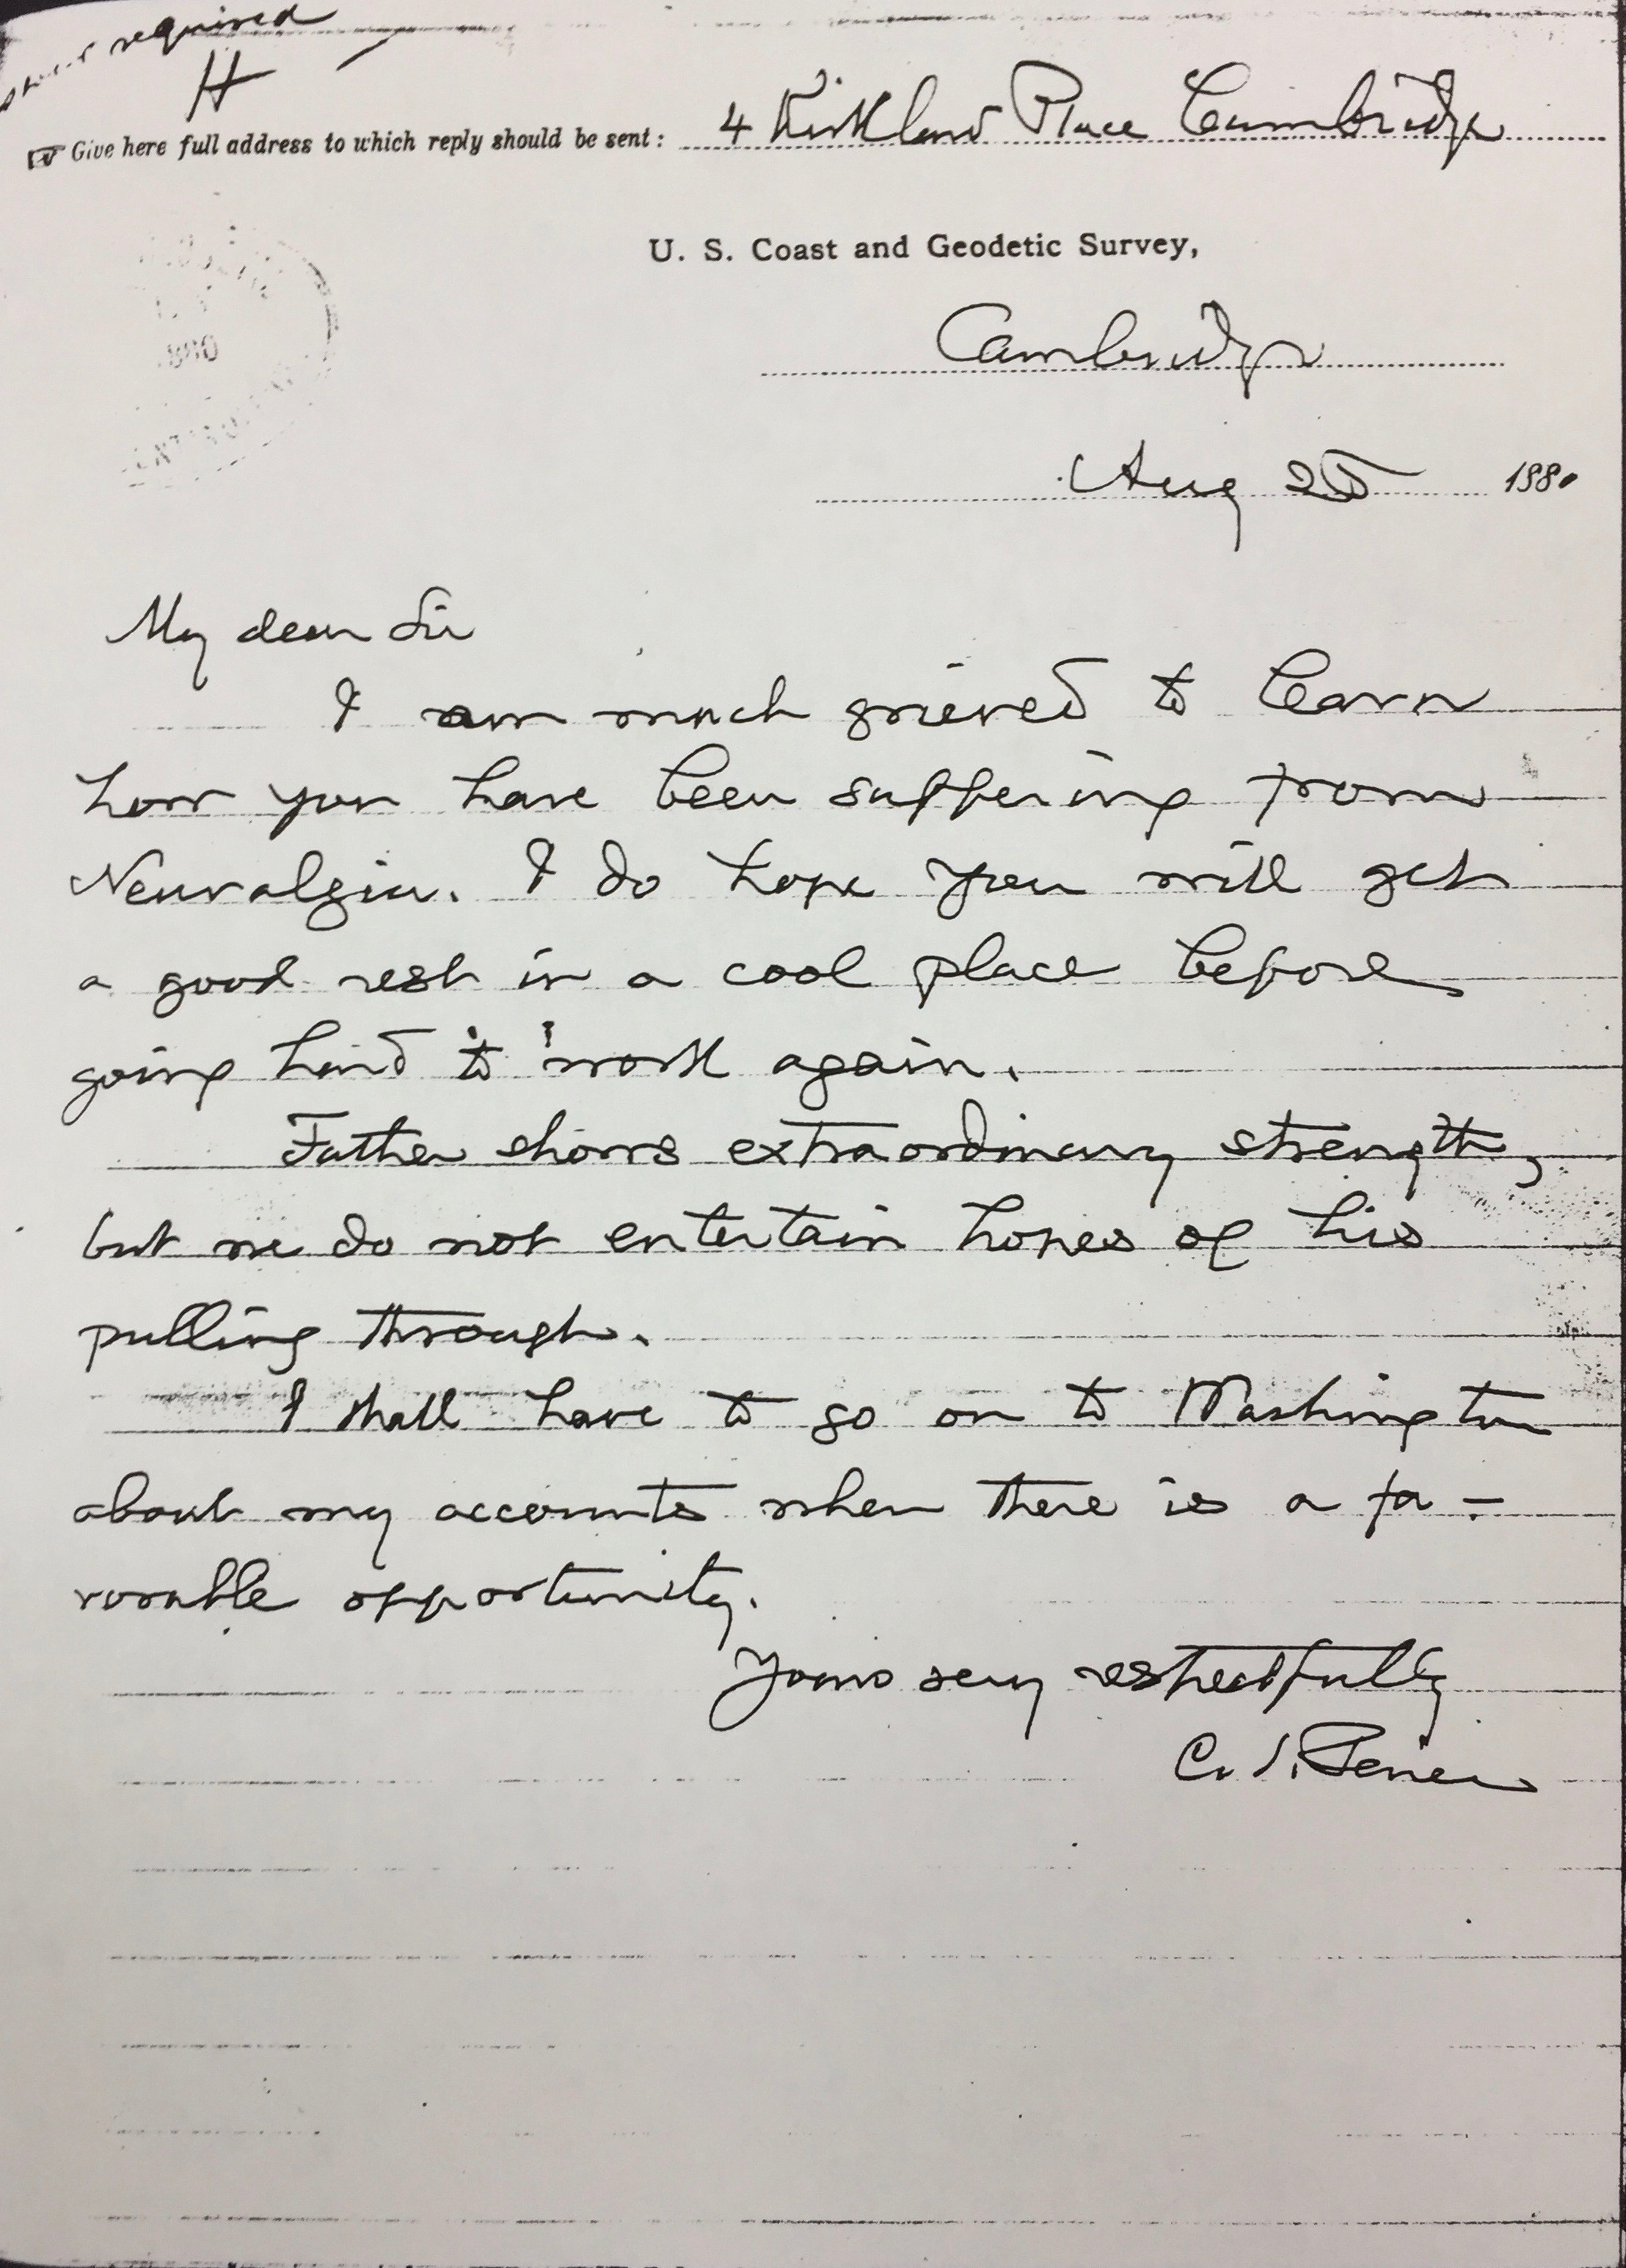 required
H
Give here full address to which reply should be sent: 4 Kirkland Place Cambridge
U. S. Coast and Geodetic Survey,
Cambridge
Aug 25 1880
My dear Sir
I am much grieved to learn
how you have been suffering from
Neuralgia. I do hope you will get
a good rest in a cool place before
going hard to work again.
Father shows extraordinary strength,
but we do not entertain hopes of his
pulling through.
I shall have to go on to Washington
about my accounts when there is a fa-
vorable opportunity.
Yours very respectfully
C. S. Peirce